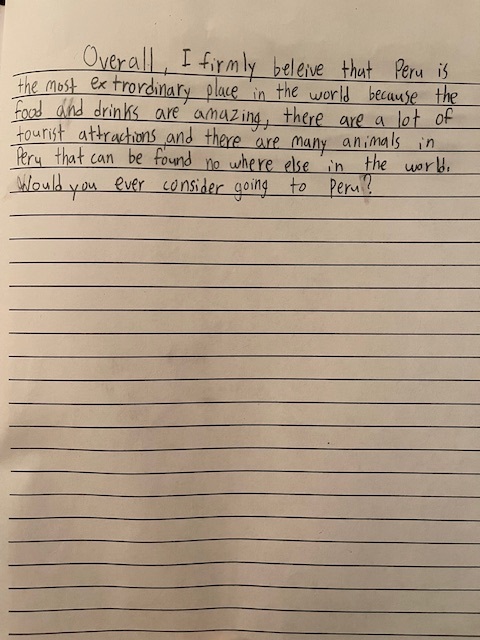 Overall, I firmly beleive that Peru is
the most extrordinary place in the world because the
food and drinks are amazing, there are a lot of
tourist attractions and there are many animals in
Peru that can be found no where else in the world.
Would you ever consider going to Peru?